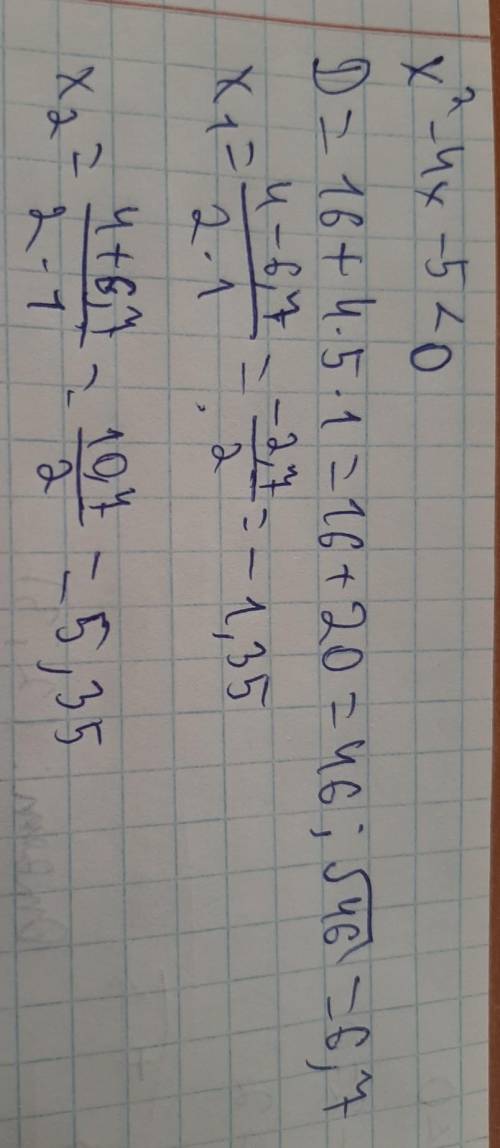 x² - 4x - 5 < 0
D = 16 + 4·5·1 = 16 + 20 = 46; √46 = 6,7
x1 = (4 - 6,7)/(2·1) = (-2,7)/2 = -1,35
x2 = (4 + 6,7)/(2·1) = (10,7)/2 = 5,35